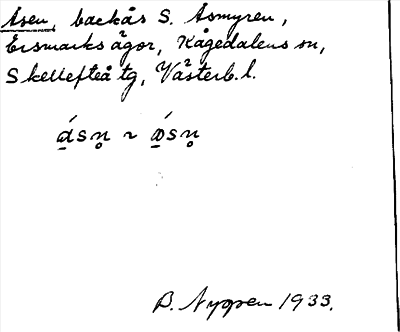 Åsen, backås S. Åsmyren,
Ersmarks ägor, Kågedalens sn,
Skellefteå tg, Västerb. l.
ɑ́sn̥ ~ ɔ́sn̥
B. Nygren 1933.